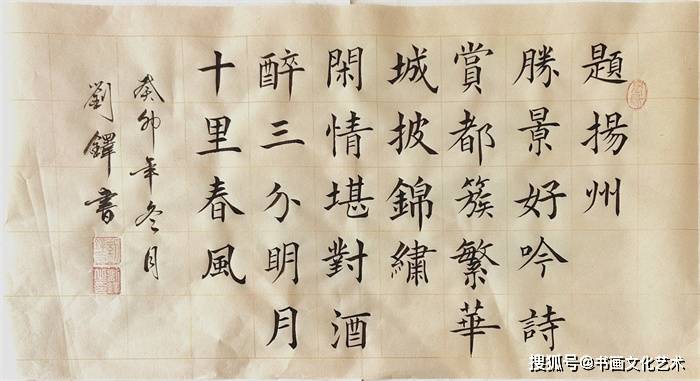 題揚州
勝景好吟詩
賞都簇繁華
城披錦繡
閑情堪對酒
醉三分明月
十里春風
癸卯年冬月
劉鐸書
搜狐号@书画文化艺术